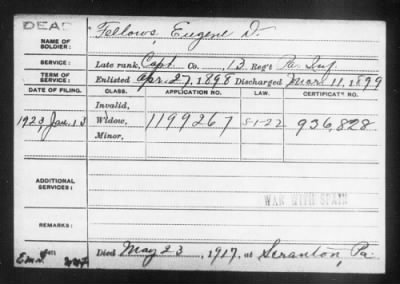 DEAD
NAME OF SOLDIER: Fellows, Eugene D.
SERVICE: Late rank, Capt. Co. 13 Reg't Pa. Inf
TERM OF SERVICE: Enlisted Apr. 27, 1898 Discharged Mar. 11, 1899
DATE OF FILING. CLASS. APPLICATION NO. LAW. CERTIFICATE NO.
Invalid,
Jan. 13 Widow, 1199267 5-1-22 936,828
Minor,
ADDITIONAL SERVICES:
WAR WITH SPAIN
REMARKS:
Died May 23, 1917, at Scranton, Pa.